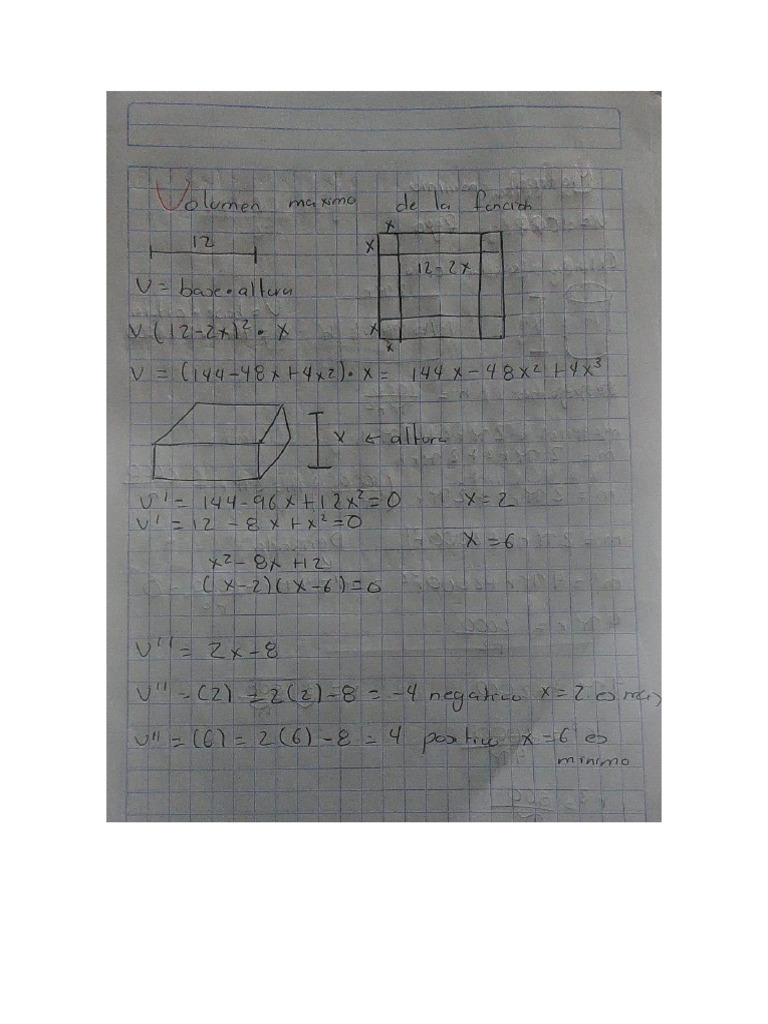 Volumen maximo de la función
12
x
x
12-2x
V = base·altura
V(12-2x)²·x
x
x
V = (144-48x+4x2)·x = 144x-48x²+4x³
x ← altura
V' = 144-96x+12x²=0 x=2
V' = 12 - 8x+x²=0
x=6
x²-8x+12
(x-2)(x-6)=0
V'' = 2x-8
V'' = (2) = 2(2)-8 = -4 negativo x=2 es max
V'' = (6) = 2(6)-8 = 4 positivo x=6 es
minimo